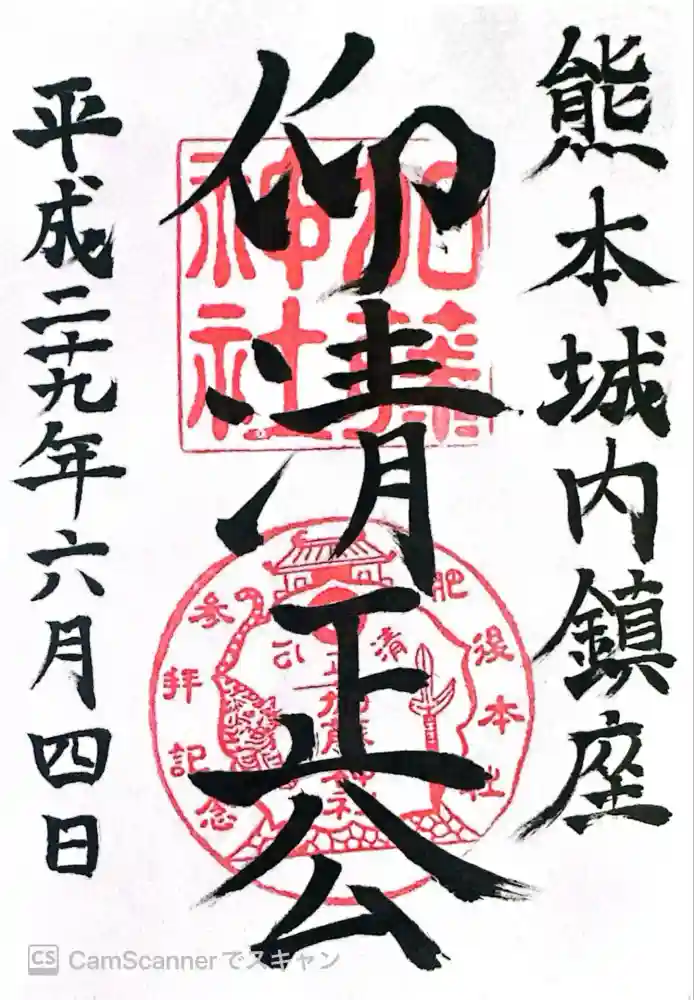 熊本城内鎮座
仰清正公
平成二十九年六月四日
加藤
神社
肥後本社
参拝記念
清正公
加藤神社
CS CamScannerでスキャン